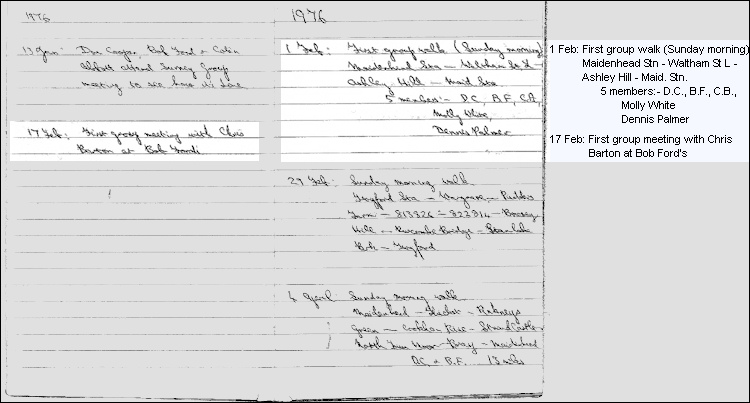 1976
13 Jan: Don Cooper, Bob Ford + Colin
attend Surrey Group
meeting to see how it is done
17 Feb: First group meeting with Chris
Barton at Bob Ford's
1976
1 Feb: First group walk (Sunday morning)
Maidenhead Stn - Waltham St L -
Ashley Hill - Maid Stn
5 members:- D.C., B.F., C.B.,
Molly White,
Dennis Palmer
29 Feb: Sunday morning walk
Twyford Stn - Wargrave -
Farm - 813826 - 823814 -
Hill - Ruscombe Bridge - Stanlake
Park - Twyford
4 April Sunday morning walk
Maidenhead - - Pinkneys
Green - Cookham Rise - Strand Castle -
North Town Moor - Bray - Maidenhead
D.C + B.F. 13 miles
1 Feb: First group walk (Sunday morning)
Maidenhead Stn - Waltham St L -
Ashley Hill - Maid. Stn.
5 members:- D.C., B.F., C.B.,
Molly White
Dennis Palmer
17 Feb: First group meeting with Chris
Barton at Bob Ford's